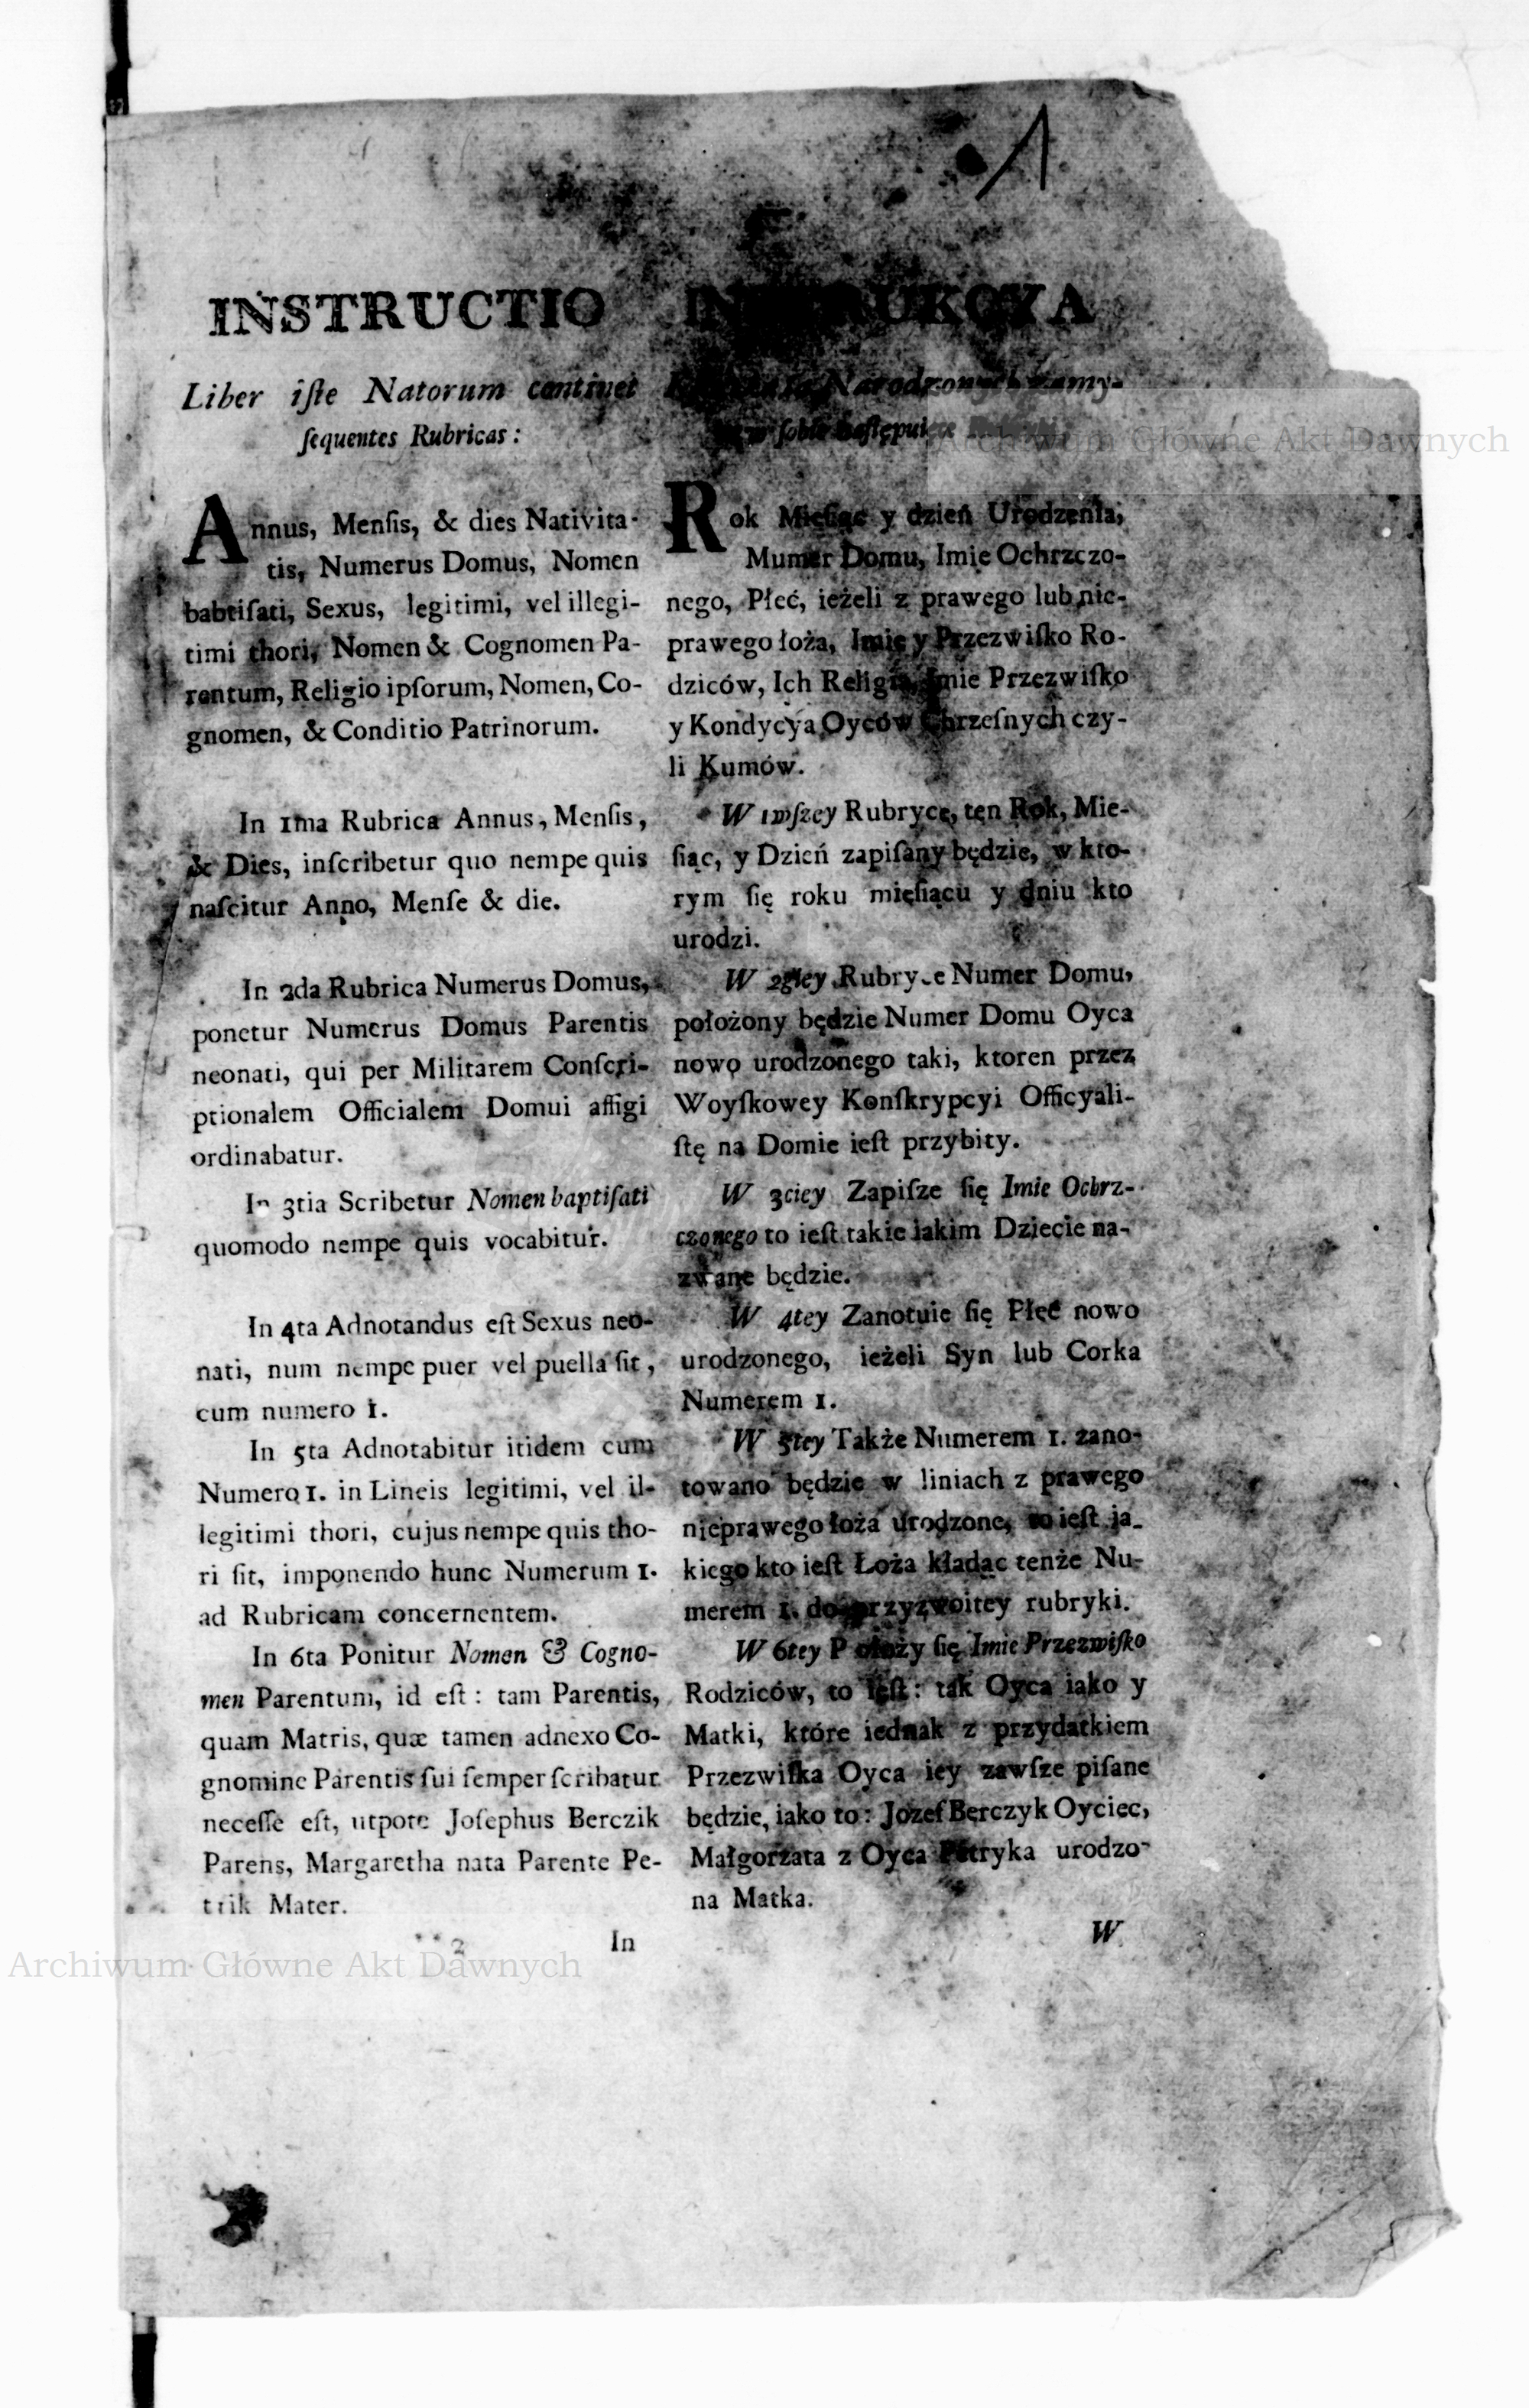 1
INSTRUCTIO
Liber iſte Natorum continet
ſequentes Rubricas:
Annus, Menſis, & dies Nativita-
tis, Numerus Domus, Nomen
babtiſati, Sexus, legitimi, vel illegi-
timi thori, Nomen & Cognomen Pa-
rentum, Religio ipſorum, Nomen, Co-
gnomen, & Conditio Patrinorum.
In 1ma Rubrica Annus, Menſis,
& Dies, inſcribetur quo nempe quis
naſcitur Anno, Menſe & die.
In 2da Rubrica Numerus Domus,
ponetur Numerus Domus Parentis
neonati, qui per Militarem Conſcri-
ptionalem Officialem Domui affigi
ordinabatur.
In 3tia Scribetur Nomen baptiſati
quomodo nempe quis vocabitur.
In 4ta Adnotandus eſt Sexus neo-
nati, num nempe puer vel puella ſit,
cum numero 1.
In 5ta Adnotabitur itidem cum
Numero 1. in Lineis legitimi, vel il-
legitimi thori, cujus nempe quis tho-
ri ſit, imponendo hunc Numerum 1.
ad Rubricam concernentem.
In 6ta Ponitur Nomen & Cogno-
men Parentum, id eſt: tam Parentis,
quam Matris, quæ tamen adnexo Co-
gnomine Parentis ſui ſemper ſcribatur
neceſſe eſt, utpote Joſephus Berczik
Parens, Margaretha nata Parente Pe-
trik Mater.
2 In
INSTRUKCYA
Narodzonych zamy-
w ſobie naſtępuiące
Rok Mieſiąc y dzień Urodzenia,
Mumer Domu, Imie Ochrzczo-
nego, Płeć, ieżeli z prawego lub nie-
prawego łoża, Imię y Przezwiſko Ro-
dziców, Ich Religia, Imie Przezwiſko
y Kondycya Oyców Chrzeſnych czy-
li Kumów.
W 1wſzey Rubryce, ten Rok, Mie-
ſiąc, y Dzień zapiſany będzie, w kto-
rym ſię roku mięſiącu y dniu kto
urodzi.
W 2giey Rubryce Numer Domu,
położony będzie Numer Domu Oyca
nowo urodzonego taki, ktoren przez
Woyſkowey Konſkrypcyi Officyali-
ſtę na Domie ieſt przybity.
W 3ciey Zapiſze ſię Imie Ochrz-
czonego to ieſt takie iakim Dziecie na-
zwane będzie.
W 4tey Zanotuie ſię Płeć nowo
urodzonego, ieżeli Syn lub Corka
Numerem 1.
W 5tey Także Numerem 1. zano-
towano będzie w liniach z prawego
nieprawego łoża urodzone, to ieſt ja-
kiego kto ieſt Łoża kładąc tenże Nu-
merem 1. do przyzwoitey rubryki.
W 6tey Położy ſię Imie Przezwiſko
Rodziców, to ieſt: tak Oyca iako y
Matki, które iednak z przydatkiem
Przezwiſka Oyca iey zawſze piſane
będzie, iako to: Jozef Berczyk Oyciec,
Małgorzata z Oyca Petryka urodzo-
na Matka.
W
Archiwum Główne Akt Dawnych
Archiwum Główne Akt Dawnych